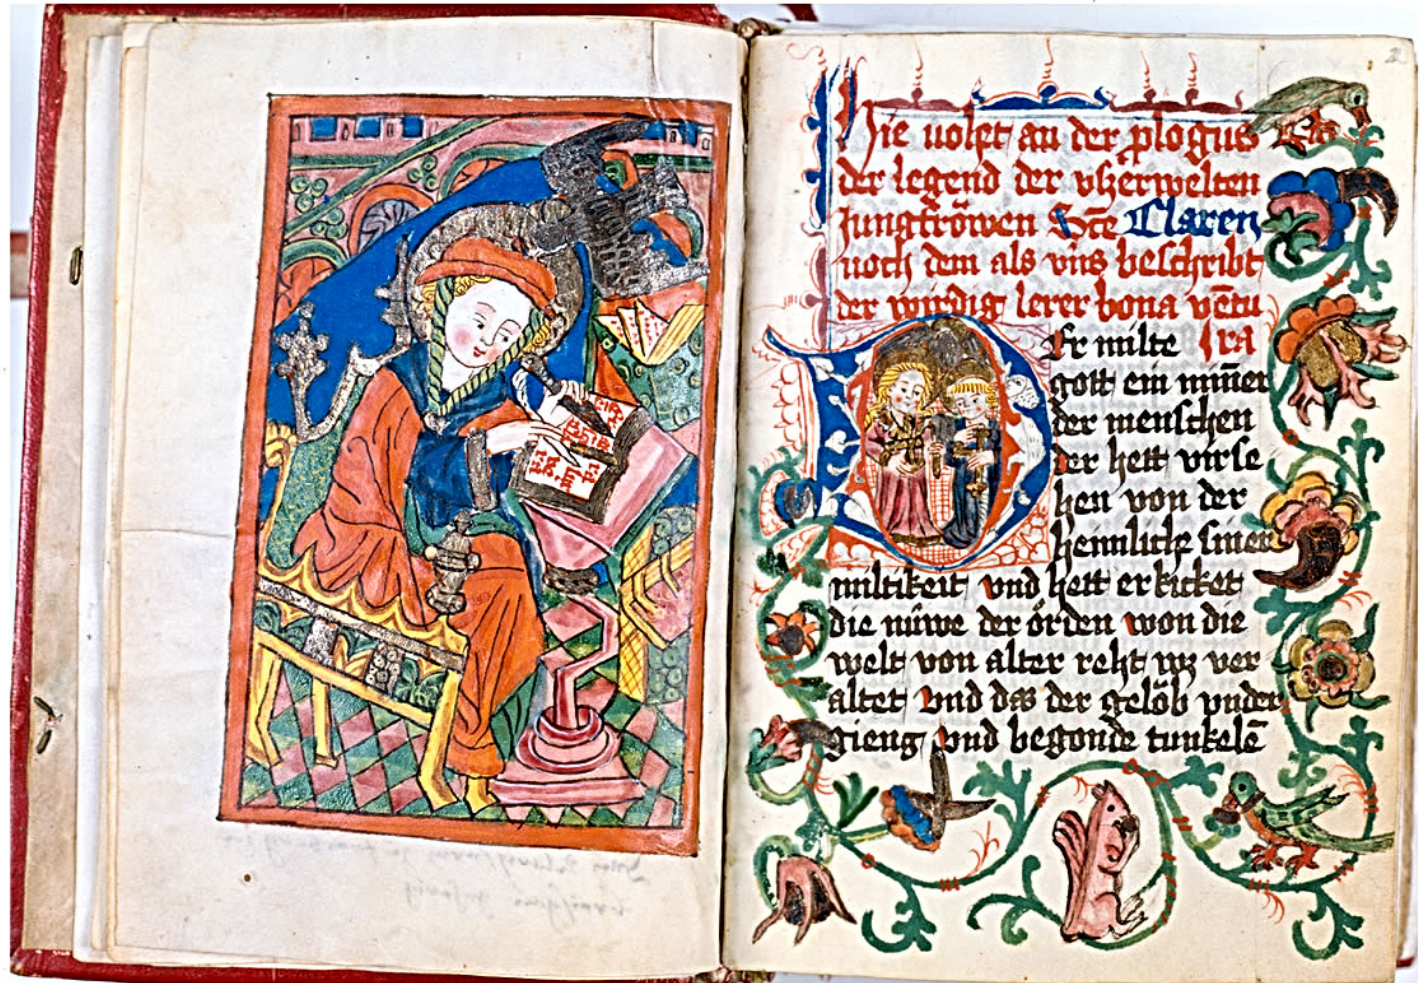 Hie uohet an der plogus
der legend der vsserwelten
Jungfröwen Scte Claren
noch dem als vns beschribt
der wirdig lerer bona ventu
ira
Er milte
gott ein minner
der menschen
der hett virse
hen von der
heimliche siner
miltikeit vnd hett erkicket
die nüwe der örden won die
welt von alter reht wz ver
altet vnd das der gelöb vnder
gieng vnd begonde tunkelē